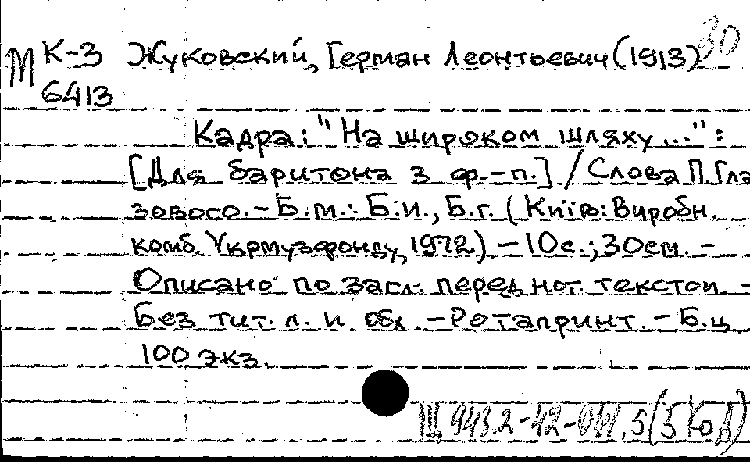 М К-3 Жуковский, Герман Леонтьевич (1913) 30
6413
Кадра: "На широком шляху...":
[Для баритона з ф.-п.] / Слова П. Гла
зового. - Б.м.: Б.и., Б.г. (Київ: Виробн.
комб. Укрмузфонду, 1972) - 10с.; 30см. -
Описано по загл. перед нот. текстом -
Без тит. л. и обл. - Ротапринт. - Б.ц.
100 экз.
Щ 943.2-42-